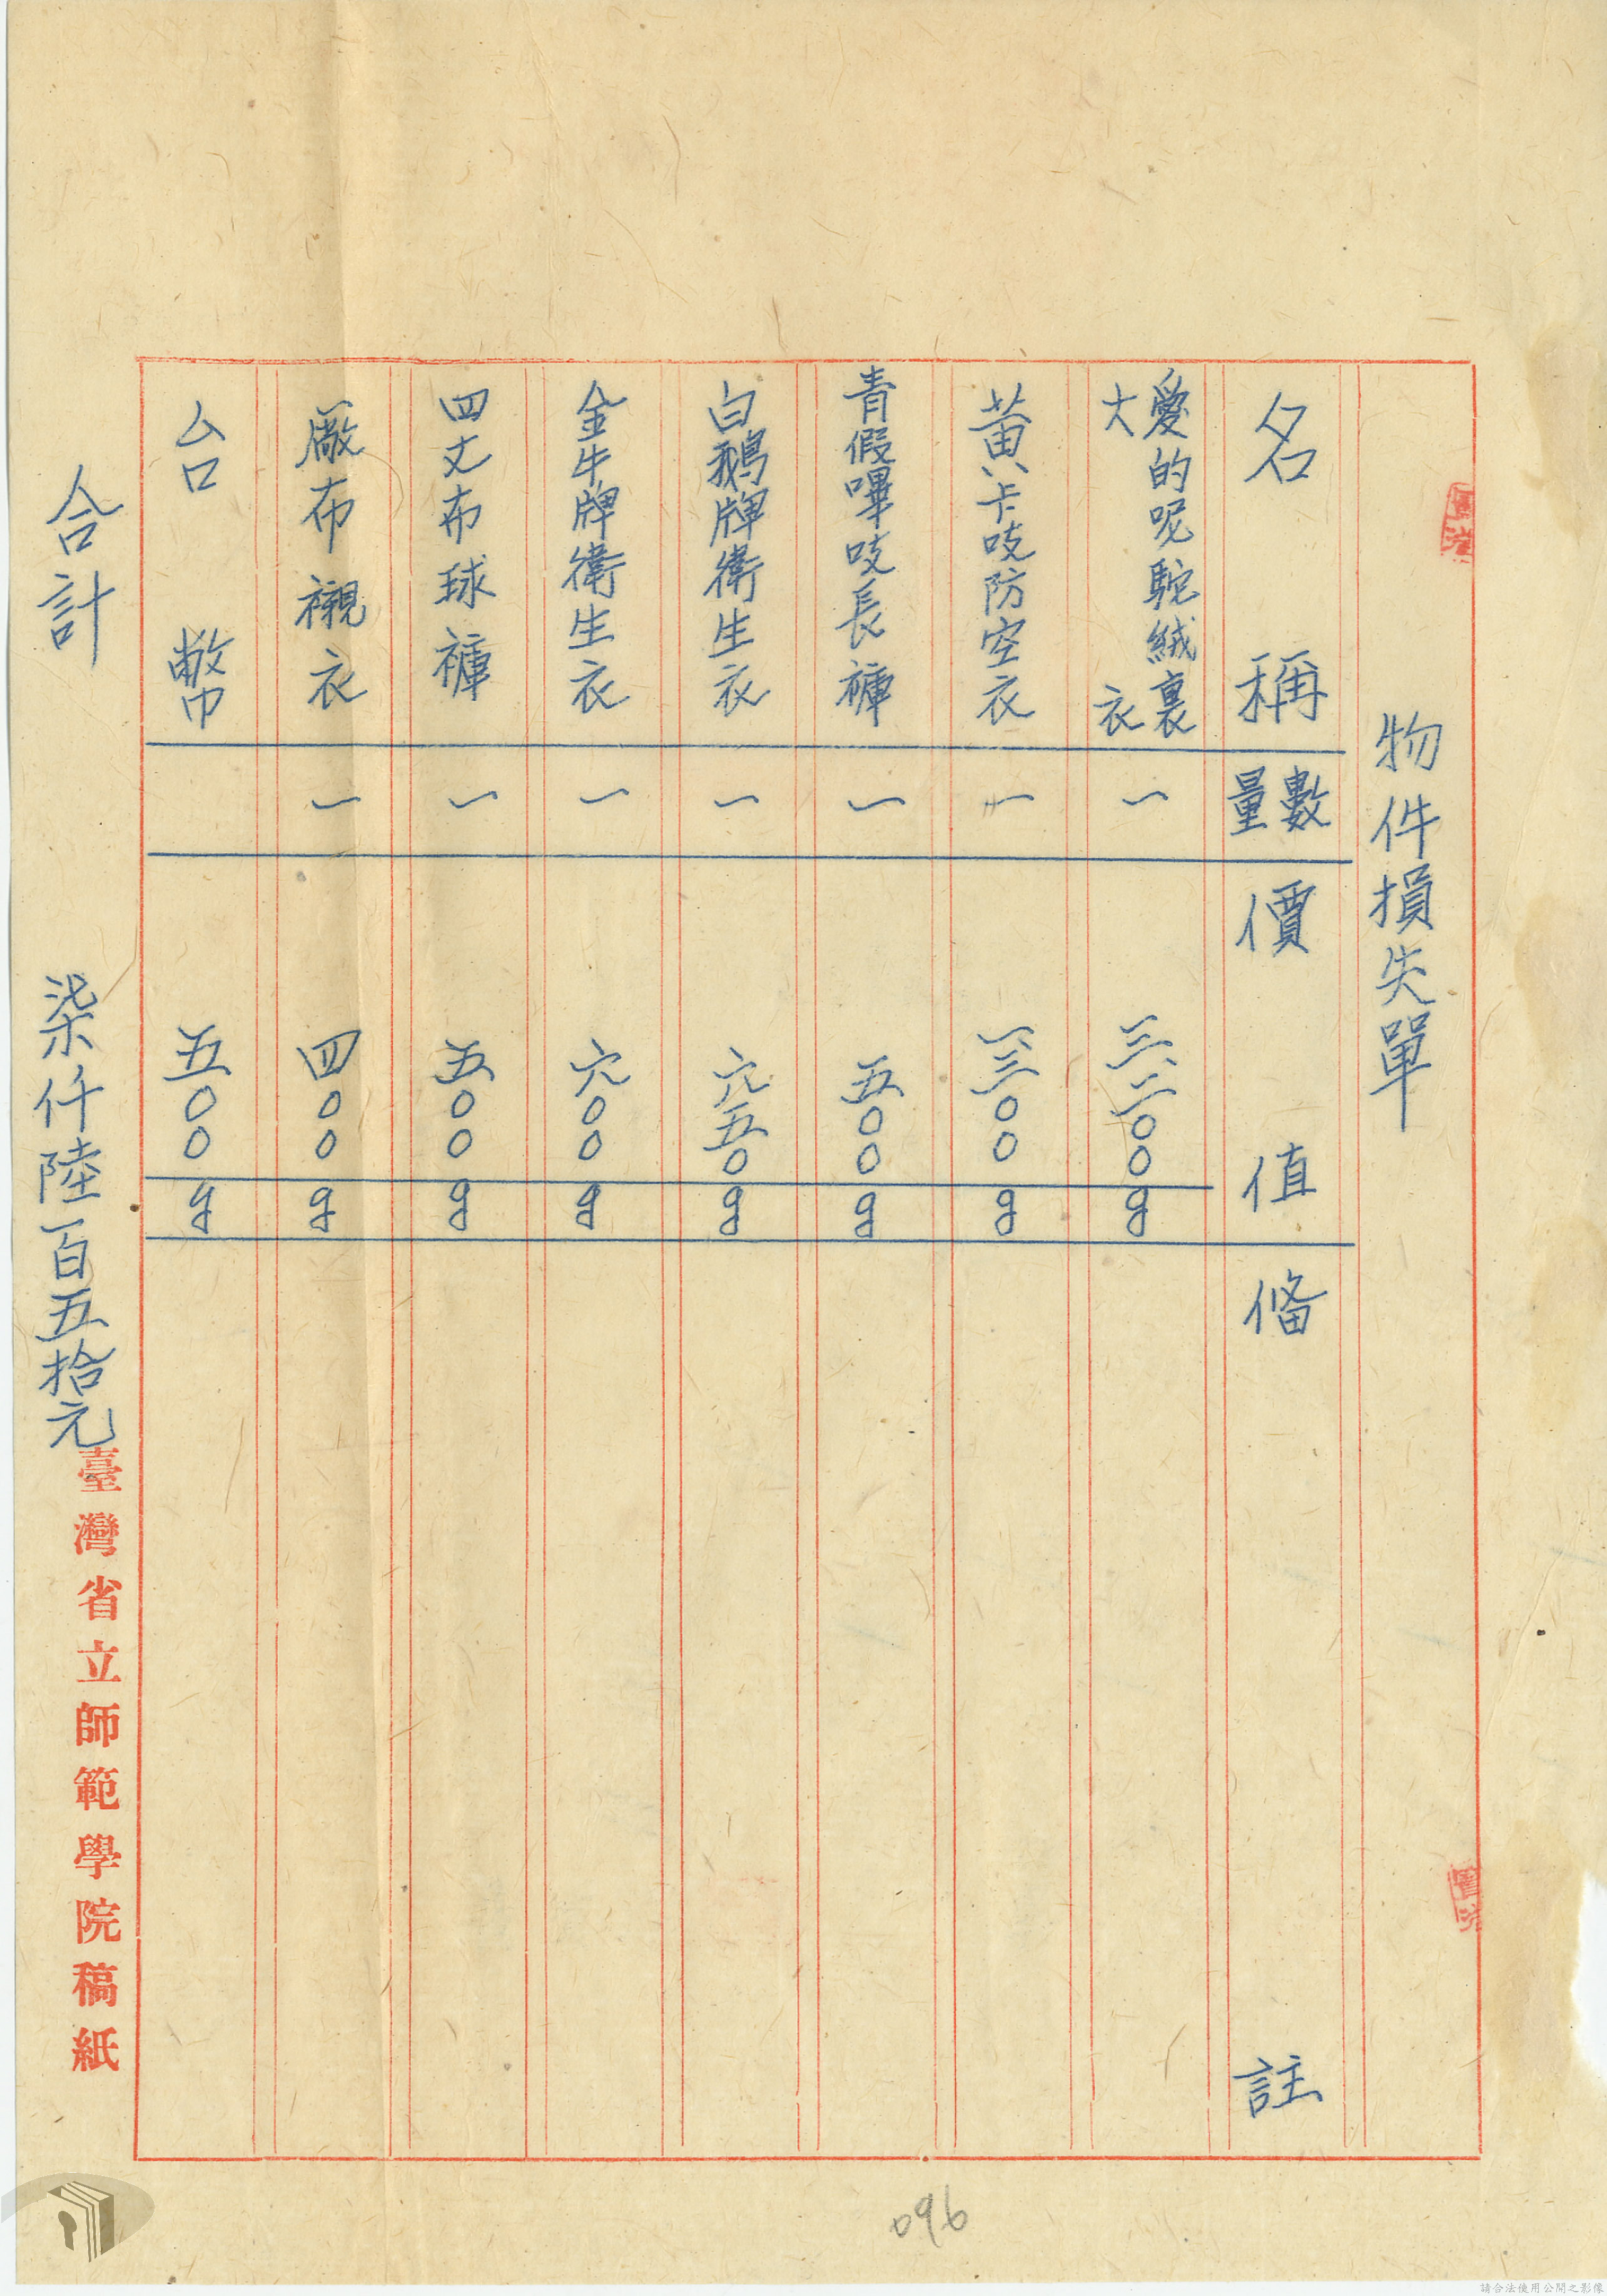 物件損失單
名稱 數量 價值 俻註
愛的呢駝絨裏大衣 一 三、二〇〇
黃卡吱防空衣 一 一、三〇〇
青假嗶吱長褲 一 五〇〇
白鵝牌衛生衣 一 六五〇
金牛牌衛生衣 一 六〇〇
四丈布球褲 一 五〇〇
廠布襯衣 一 四〇〇
台幣 五〇〇
合計 柒仟陸百五拾元
臺灣省立師範學院稿紙
096
請合法使用公開之影像